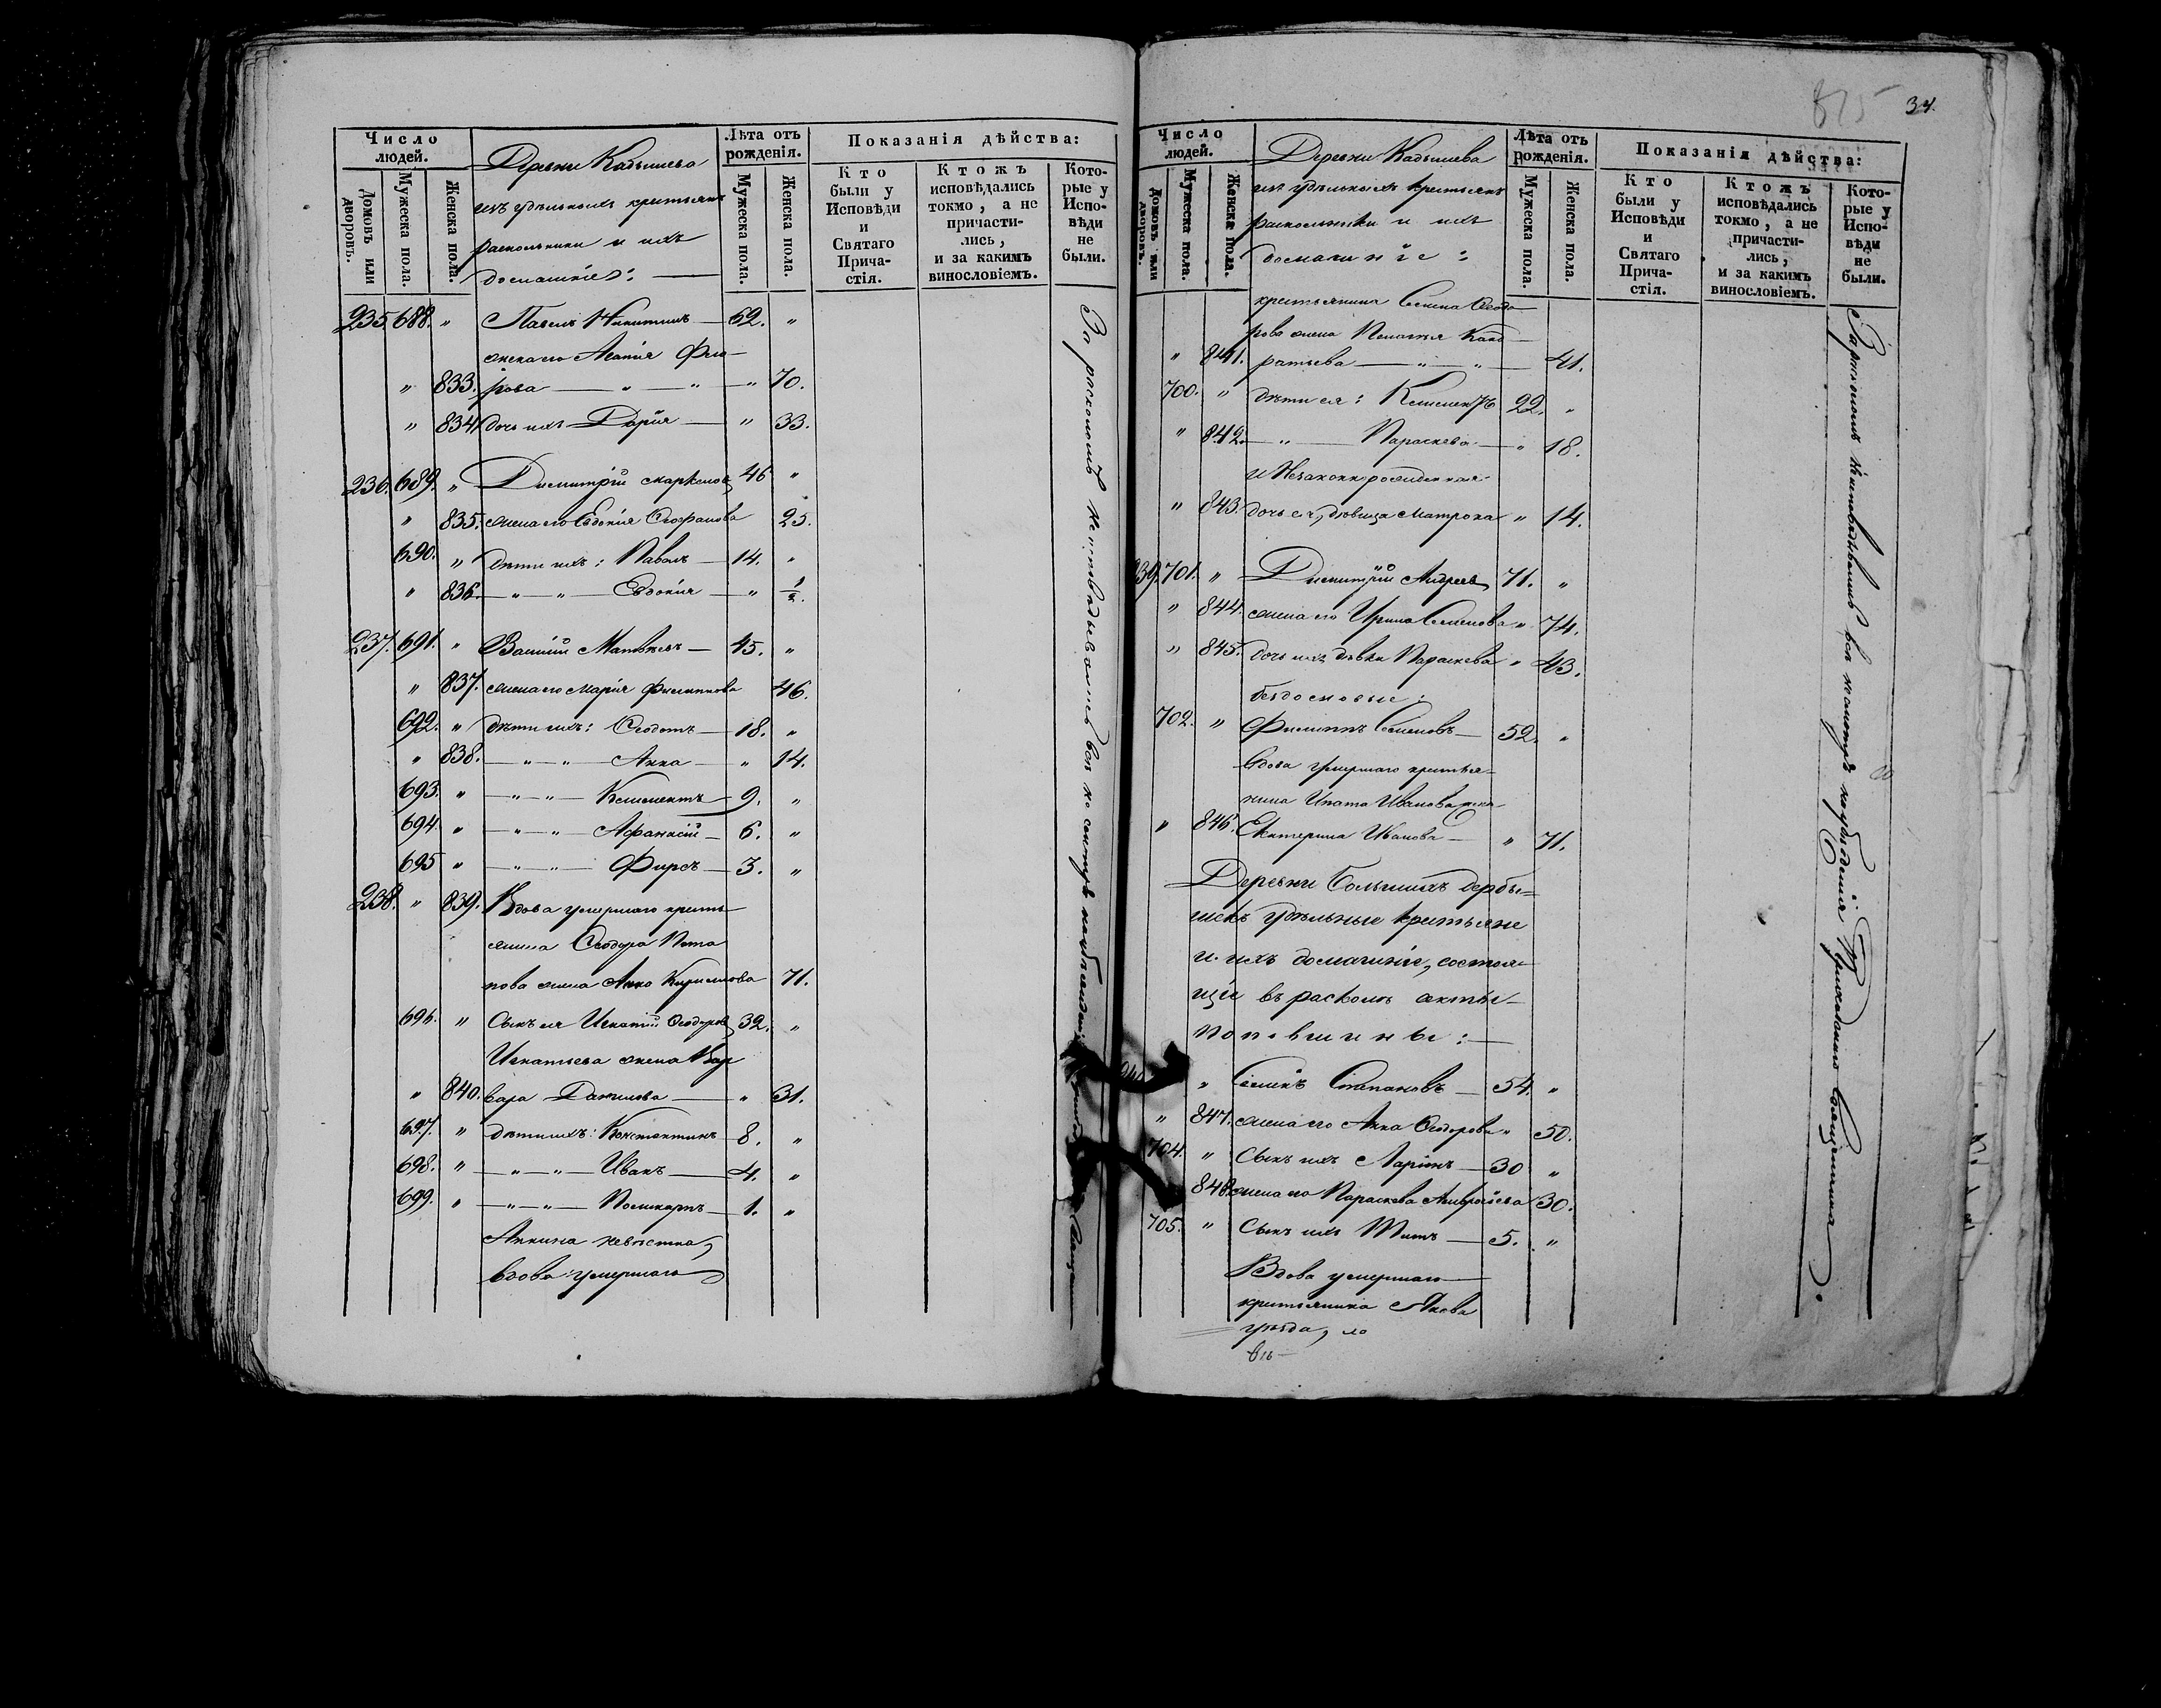 Число людей.
Домовъ или дворовъ.
Мужеска пола.
Женска пола.
Деревни Кадышева
изъ удѣльныхъ крестьянъ
раскольники и ихъ
домашніе:
Лѣта отъ рожденія.
Мужеска пола.
Женска пола.
Показанія дѣйства:
Кто были у Исповѣди и Святаго Причастія.
Ктожъ исповѣдались токмо, а не причастились, и за какимъ винословіемъ.
Которые у Исповѣди не были.
235. 688. " Павелъ Никитинъ — 62. "
жена его Агапія Фло-
" 833. рова — " — " — " 70.
" 834. дочь ихъ Дарія — " 33.
236. 689. " Димитрій Маркеловъ 46 "
" 835. жена его Евдокія Ѳеофанова 25.
690. " дѣти ихъ: Павелъ — 14. "
" 836. — " — " — Евдокія — " ½.
237. 691. " Василій Матвѣевъ — 45. "
" 837. жена его Марія Филиппова 46.
692. " дѣти ихъ: Ѳеодотъ — 18. "
" 838. — " — " — Анна — " 14.
693. " — " — " — Климентъ — 9. "
694. " — " — " — Афанасій — 6. "
695 " — " — " — Фирсъ — 3. "
238. " 839. Вдова умершаго кресть-
янина Ѳеодора Пота-
пова жена Анна Кирилова 71.
696. " Сынъ ея Игнатій Ѳеодоровъ 32. "
Игнатьева жена Вар
" 840. вара Данилова — " 31.
697. " дѣти ихъ: Константинъ 8. "
698. " — " — " — Иванъ — 4. "
699. " — " — " — Поликарпъ — 1. "
Аннина невѣстка,
вдова умершаго
За расколомъ неисповѣдывались вси по смотрѣ наблюденія
34.
Число людей.
Домовъ или дворовъ.
Мужеска пола.
Женска пола.
Деревни Кадышева
изъ удѣльныхъ крестьянъ
раскольники и ихъ
домашніе:
Лѣта отъ рожденія.
Мужеска пола.
Женска пола.
Показанія дѣйства:
Кто были у Исповѣди и Святаго Причастія.
Ктожъ исповѣдались токмо, а не причастились, и за какимъ винословіемъ.
Которые у Исповѣди не были.
крестьянина Семена Ѳеодо-
рова жена Пелагея Конд-
" 841. ратьева — " — " — 41.
700. " дѣти ея: Климентъ 22. "
" 842. — " — Параскева — " 18.
и Незаконнорожденная
" 843. дочь ея, дѣвица Матрона " 14.
239. 701. " Димитрій Андреевъ 71. "
" 844. жена его Ирина Семенова " 74.
" 845. дочь ихъ дѣвка Параскева " 43.
бездомовые:
702. " Филиппъ Семеновъ — 52. "
Вдова умершаго кресть-
янина Ипата Иванова жена
" 846. Екатерина Иванова — " 71.
Деревни Большихъ Дербы-
шекъ удѣльные крестьяне
и ихъ домашніе, состоя-
щіе въ расколѣ
поповщины:
" Семенъ Степановъ — 54. "
" 847. жена его Анна Ѳеодорова " 50.
704. " Сынъ ихъ Ларіонъ — 30 "
848. жена его Параскева Амвросіева 30.
705. " Сынъ ихъ Титъ — 5. "
Вдова умершаго
крестьянина Якова
уѣзда,